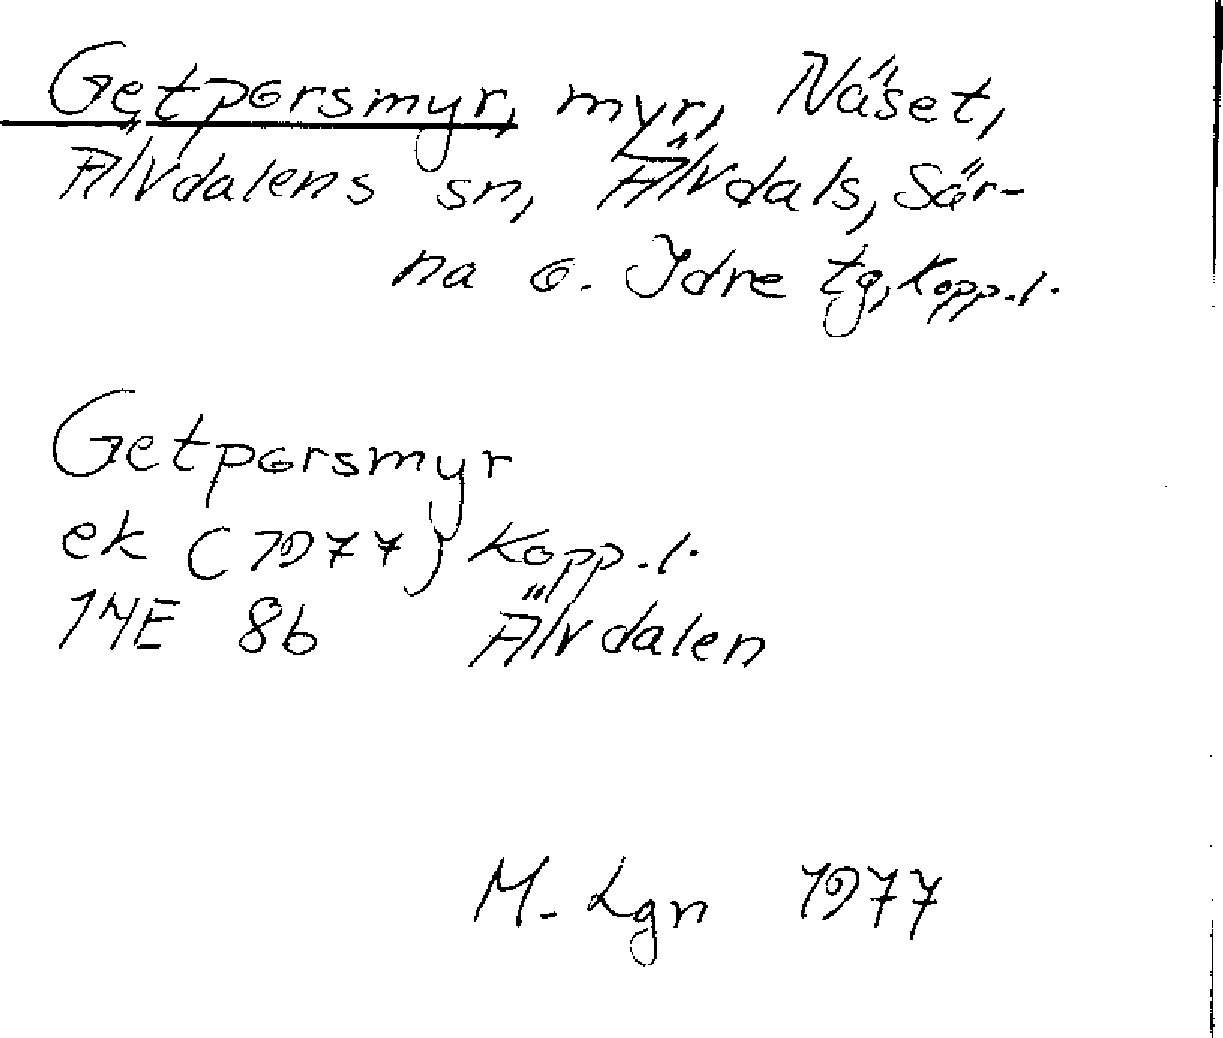 Getporsmyr, myr, Näset,
Älvdalens sn, Älvdals, Sär-
na o. Idre tg, Kopp.l.
Getporsmyr
ek (1977) Kopp.l.
14E 8b Älvdalen
M. Lgn 1977